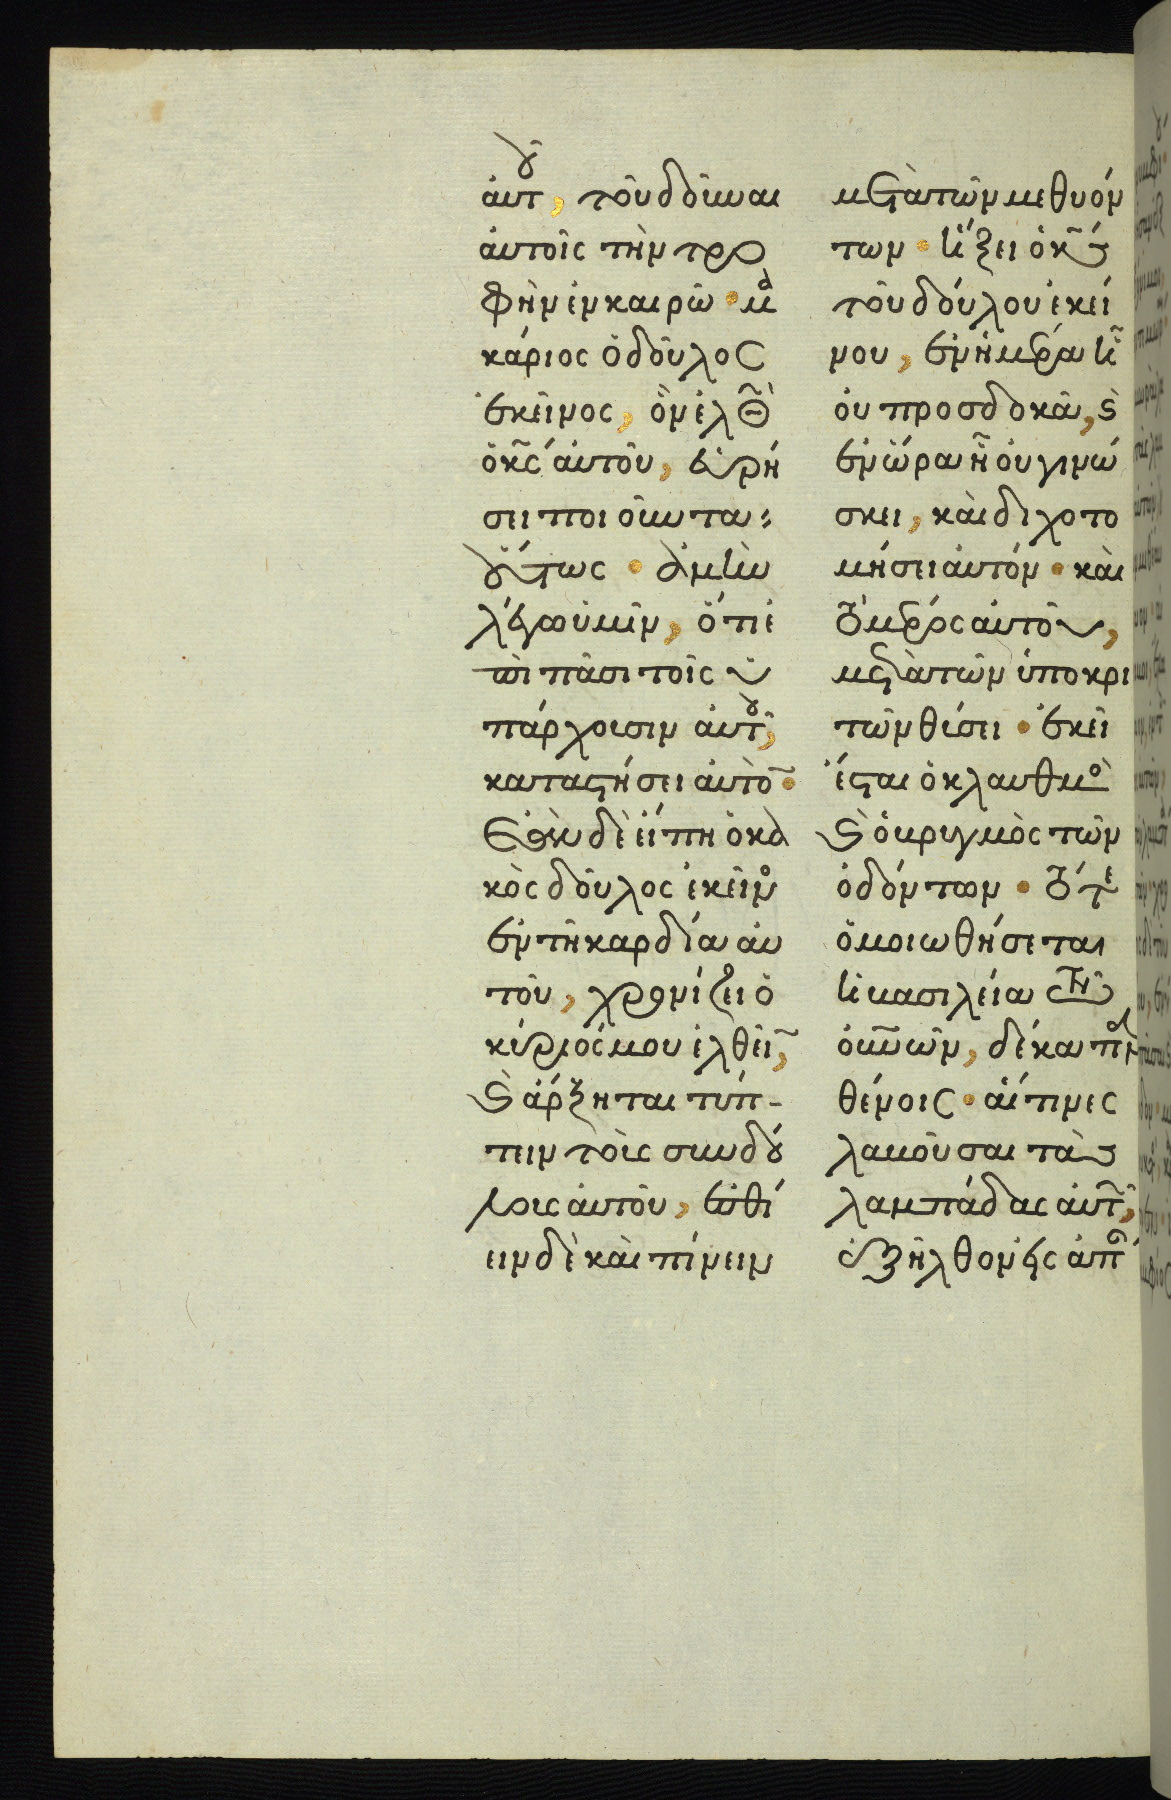 ἀυτοῦ, τοῦ δοῦναι
ἀυτοῖς τὴν τρο
φὴν ἐν καιρῶ · μα
κάριος ὁ δοῦλος
ἐκεῖνος, ὃν ἐλθὼν
ὁ κς ἀυτοῦ, ἑυρή
σει ποιοῦντα
οὕτως · ἀμὴν
λέγω ὑμῖν, ὅτι ἐ
πὶ πᾶσι τοῖς ὑ
πάρχουσιν ἀυτοῦ,
καταστήσει ἀυτὸν ·
ἐὰν δὲ εἴπη ὁ κα
κὸς δοῦλος ἐκεῖνος
ἐν τῆ καρδία ἀυ
τοῦ, χρονίζει ὁ
κύριός μου ἐλθεῖν,
καὶ ἄρξηται τύπ-
τειν τοὺς συνδού
λους ἀυτοῦ, ἐσθί
ειν δὲ καὶ πίνειν
μετὰ τῶν μεθυόν
των · ἥξει ὁ κς
τοῦ δούλου ἐκεί
νου, ἐν ἡμέρα ἧ
οὐ προσδοκᾶ, καὶ
ἐν ὥρα ἧ οὐ γινώ
σκει, καὶ διχοτο
μήσει ἀυτόν · καὶ
τὸ μέρος ἀυτοῦ,
μετὰ τῶν ὑποκρι
τῶν θήσει · ἐκεῖ
ἔσται ὁ κλαυθμὸς
καὶ ὁ βρυγμὸς τῶν
ὀδόντων · τότε
ὁμοιωθήσεται
ἡ βασιλεία τῶν
οὐνῶν, δέκα παρ
θένοις · αἵτινες
λαβοῦσαι τὰς
λαμπάδας ἀυτῶν,
ἐξῆλθον εἰς ἀπάν